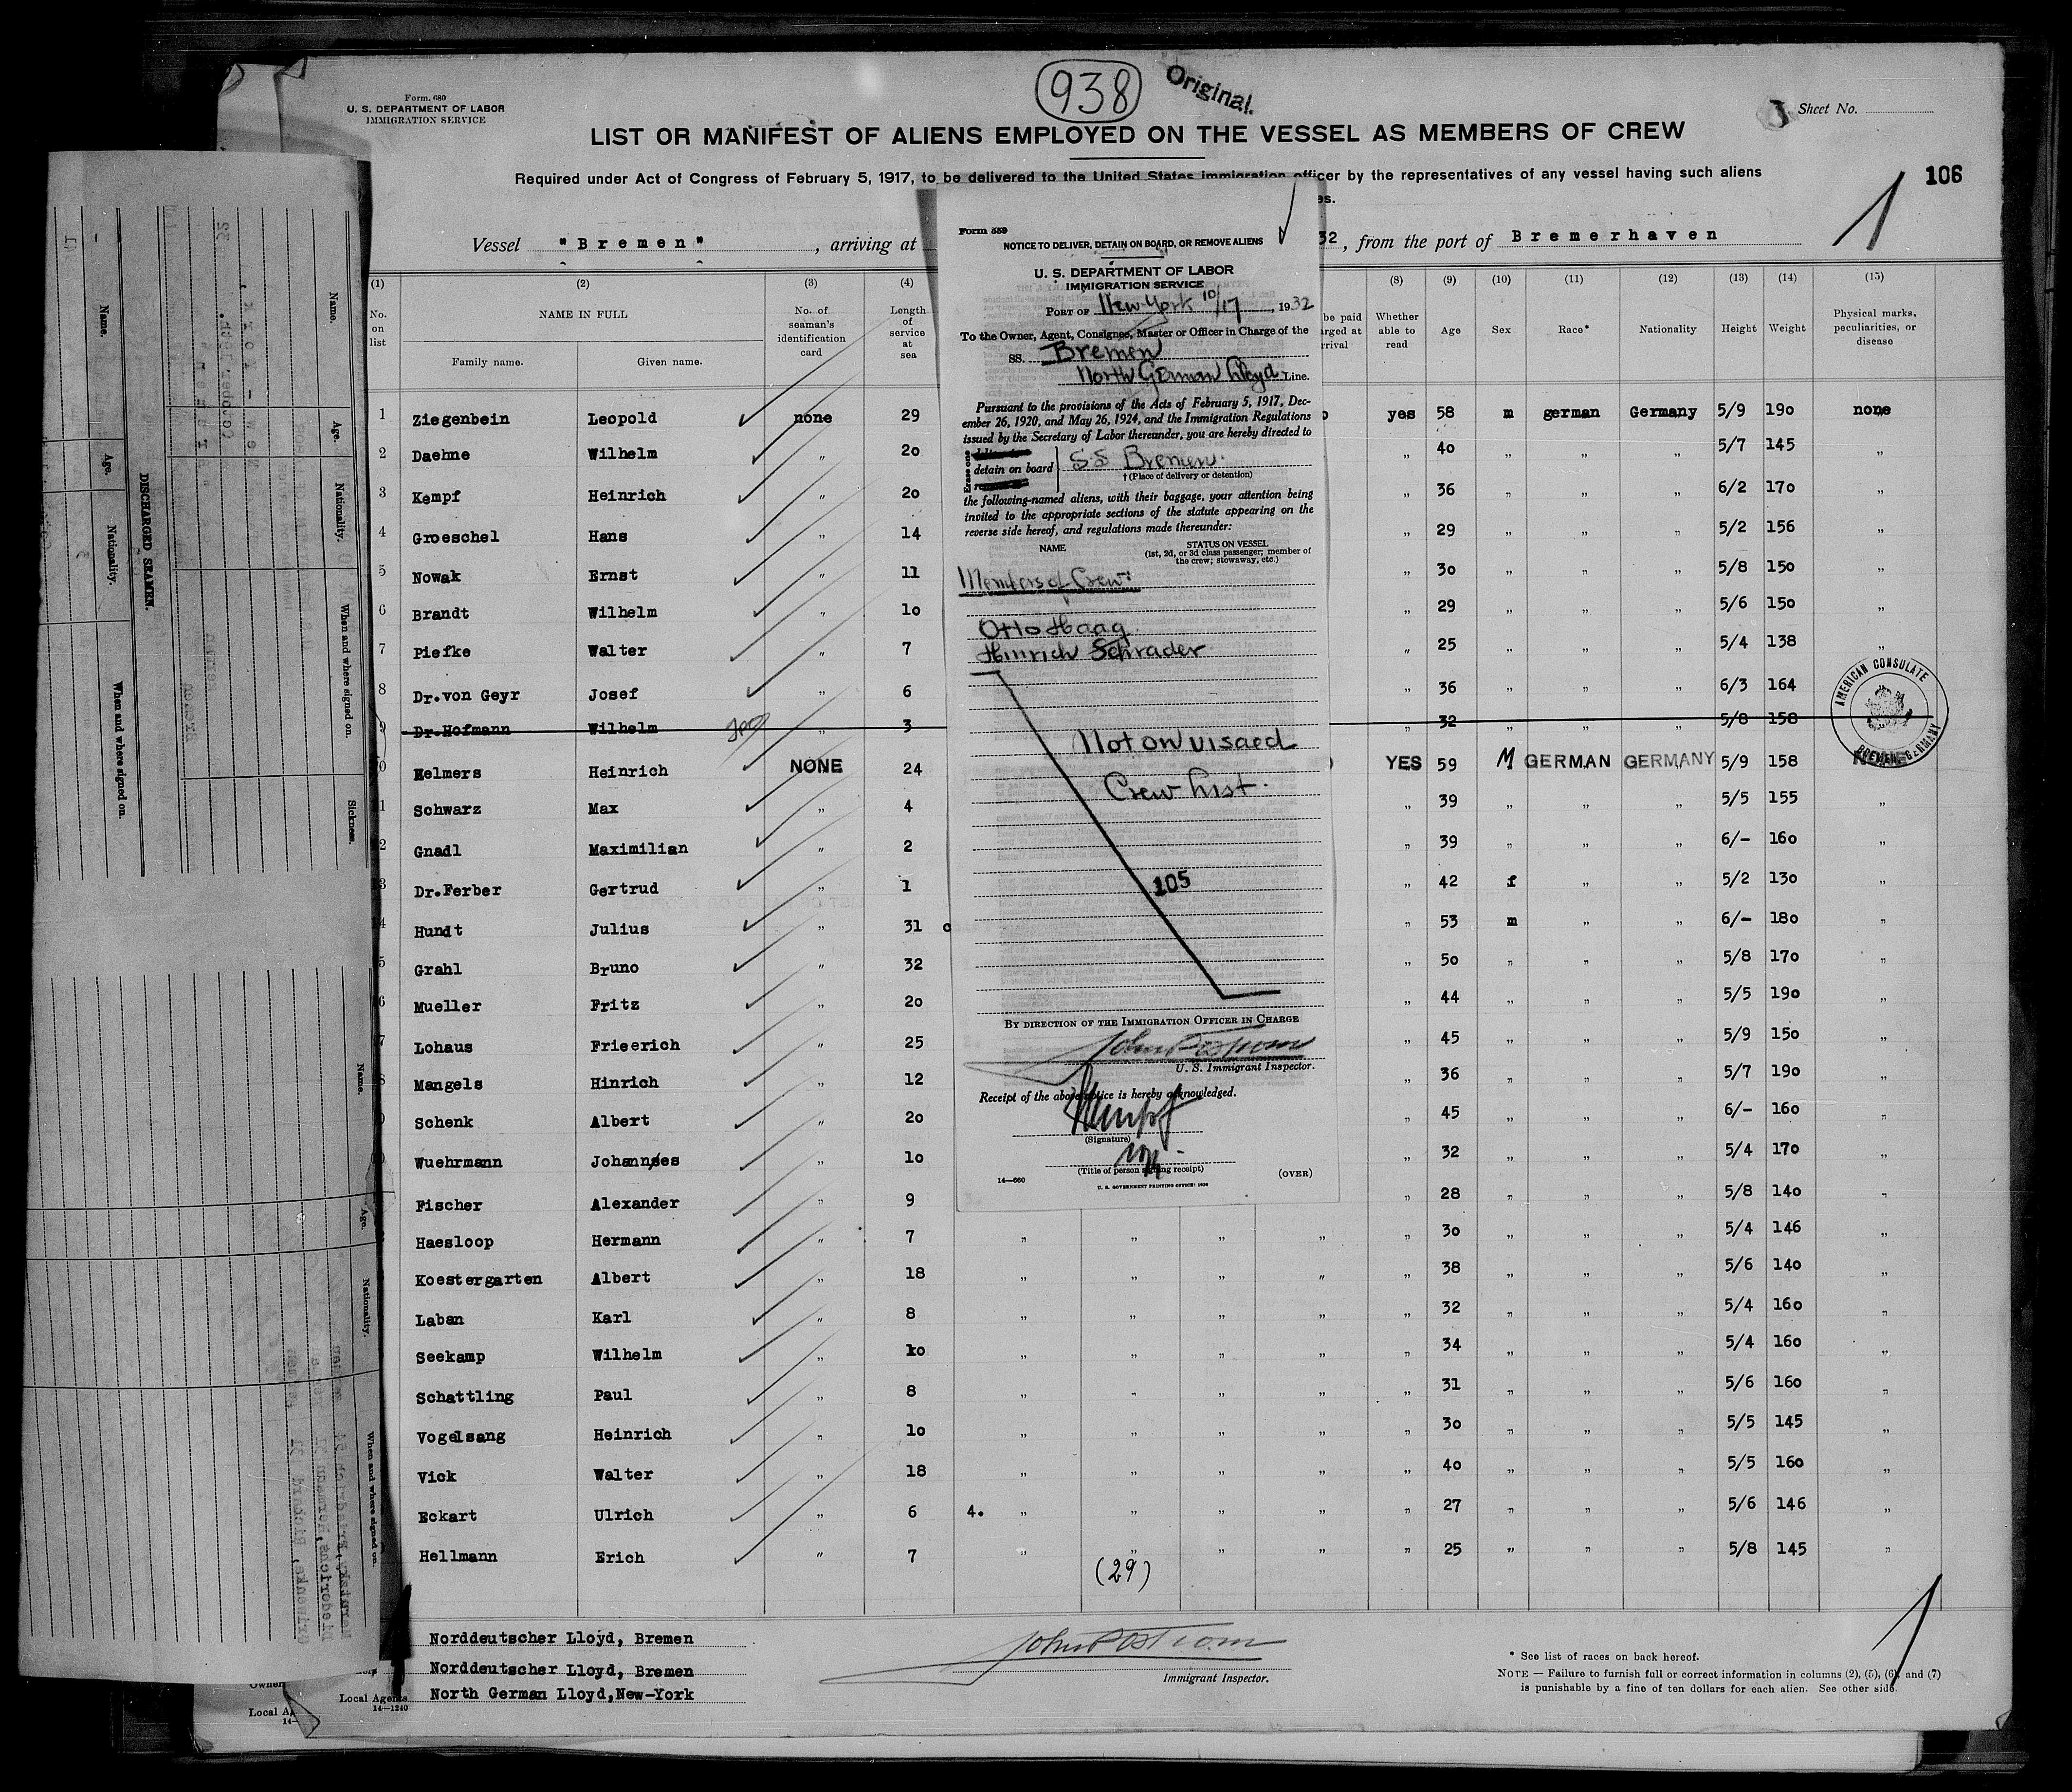 Form. 680
U. S. DEPARTMENT OF LABOR
IMMIGRATION SERVICE
938
Original.
Sheet No.
LIST OR MANIFEST OF ALIENS EMPLOYED ON THE VESSEL AS MEMBERS OF CREW
Required under Act of Congress of February 5, 1917, to be delivered to the United States immigration officer by the representatives of any vessel having such aliens
1
106
Vessel "Bremen", arriving at
32, from the port of Bremerhaven
(1) (2) (3) (4) (8) (9) (10) (11) (12) (13) (14) (15)
No. on list
NAME IN FULL
Family name. Given name.
No. of seaman's identification card
Length of service at sea
Whether able to read
Age Sex Race* Nationality Height Weight
Physical marks, peculiarities, or disease
1 Ziegenbein Leopold none 29 yes 58 m german Germany 5/9 190 none
2 Daehne Wilhelm " 20 " 40 " " " 5/7 145 "
3 Kempf Heinrich " 20 " 36 " " " 6/2 170 "
4 Groeschel Hans " 14 " 29 " " " 5/2 156 "
5 Nowak Ernst " 11 " 30 " " " 5/8 150 "
6 Brandt Wilhelm " 10 " 29 " " " 5/6 150 "
7 Piefke Walter " 7 " 25 " " " 5/4 138 "
8 Dr.von Geyr Josef " 6 " 36 " " " 6/3 164
9 Dr.Hofmann Wilhelm " 3 " 32 " " " 5/8 158
0 Helmers Heinrich NONE 24 YES 59 M GERMAN GERMANY 5/9 158
1 Schwarz Max " 4 " 39 " " " 5/5 155 "
2 Gnadl Maximilian " 2 " 39 " " " 6/- 160 "
3 Dr.Ferber Gertrud " 1 " 42 f " " 5/2 130 "
4 Hundt Julius " 31 " 53 m " " 6/- 180 "
5 Grahl Bruno " 32 " 50 " " " 5/8 170 "
6 Mueller Fritz " 20 " 44 " " " 5/5 190 "
7 Lohaus Frieerich " 25 " 45 " " " 5/9 150 "
8 Mangels Hinrich " 12 " 36 " " " 5/7 190 "
Schenk Albert " 20 " 45 " " " 6/- 160 "
Wuehrmann Johannes " 10 " 32 " " " 5/4 170 "
Fischer Alexander " 9 " 28 " " " 5/8 140 "
Haesloop Hermann " 7 " " " " " 30 " " " 5/4 146 "
Koestergarten Albert " 18 " " " " " 38 " " " 5/6 140 "
Laban Karl " 8 " " " " " 32 " " " 5/4 160 "
Seekamp Wilhelm " 10 " " " " " 34 " " " 5/4 160 "
Schattling Paul " 8 " " " " " 31 " " " 5/6 160 "
Vogelsang Heinrich " 10 " " " " " 30 " " " 5/5 145 "
Vick Walter " 18 " " " " " 40 " " " 5/5 160 "
Eckart Ulrich " 6 4. " " " " " 27 " " " 5/6 146 "
Hellmann Erich " 7 " " " " " 25 " " " 5/8 145 "
(29)
AMERICAN CONSULATE
BREMEN, GERMANY
Norddeutscher Lloyd, Bremen
Norddeutscher Lloyd, Bremen
Local Agents North German Lloyd,New-York
14—1240
Immigrant Inspector.
* See list of races on back hereof.
NOTE — Failure to furnish full or correct information in columns (2), (5), (6), and (7)
is punishable by a fine of ten dollars for each alien. See other side.
Form 559
NOTICE TO DELIVER, DETAIN ON BOARD, OR REMOVE ALIENS
U. S. DEPARTMENT OF LABOR
IMMIGRATION SERVICE
PORT OF New York 10/17, 1932
To the Owner, Agent, Consignee, Master or Officer in Charge of the
SS. Bremen
North German Lloyd Line.
Pursuant to the provisions of the Acts of February 5, 1917, Dec-
ember 26, 1920, and May 26, 1924, and the Immigration Regulations
issued by the Secretary of Labor thereunder, you are hereby directed to
Erase one
detain on board SS Bremen.
† (Place of delivery or detention)
the following-named aliens, with their baggage, your attention being
invited to the appropriate sections of the statute appearing on the
reverse side hereof, and regulations made thereunder:
NAME STATUS ON VESSEL
(1st, 2d, or 3d class passenger; member of
the crew; stowaway, etc.)
Members of Crew:
Otto Haag
Hinrich Schrader
Not on visaed
Crew List.
105
BY DIRECTION OF THE IMMIGRATION OFFICER IN CHARGE
U. S. Immigrant Inspector.
Receipt of the above notice is hereby acknowledged.
Kempf
(Signature)
(Title of person signing receipt)
14—660
(OVER)
U. S. GOVERNMENT PRINTING OFFICE: 1930
DISCHARGED SEAMEN.
Name. Age. Nationality. When and where signed on.
Name. Age. Nationality. When and where signed on. Sickness.
Name. Age. Nationality. When and where signed on.